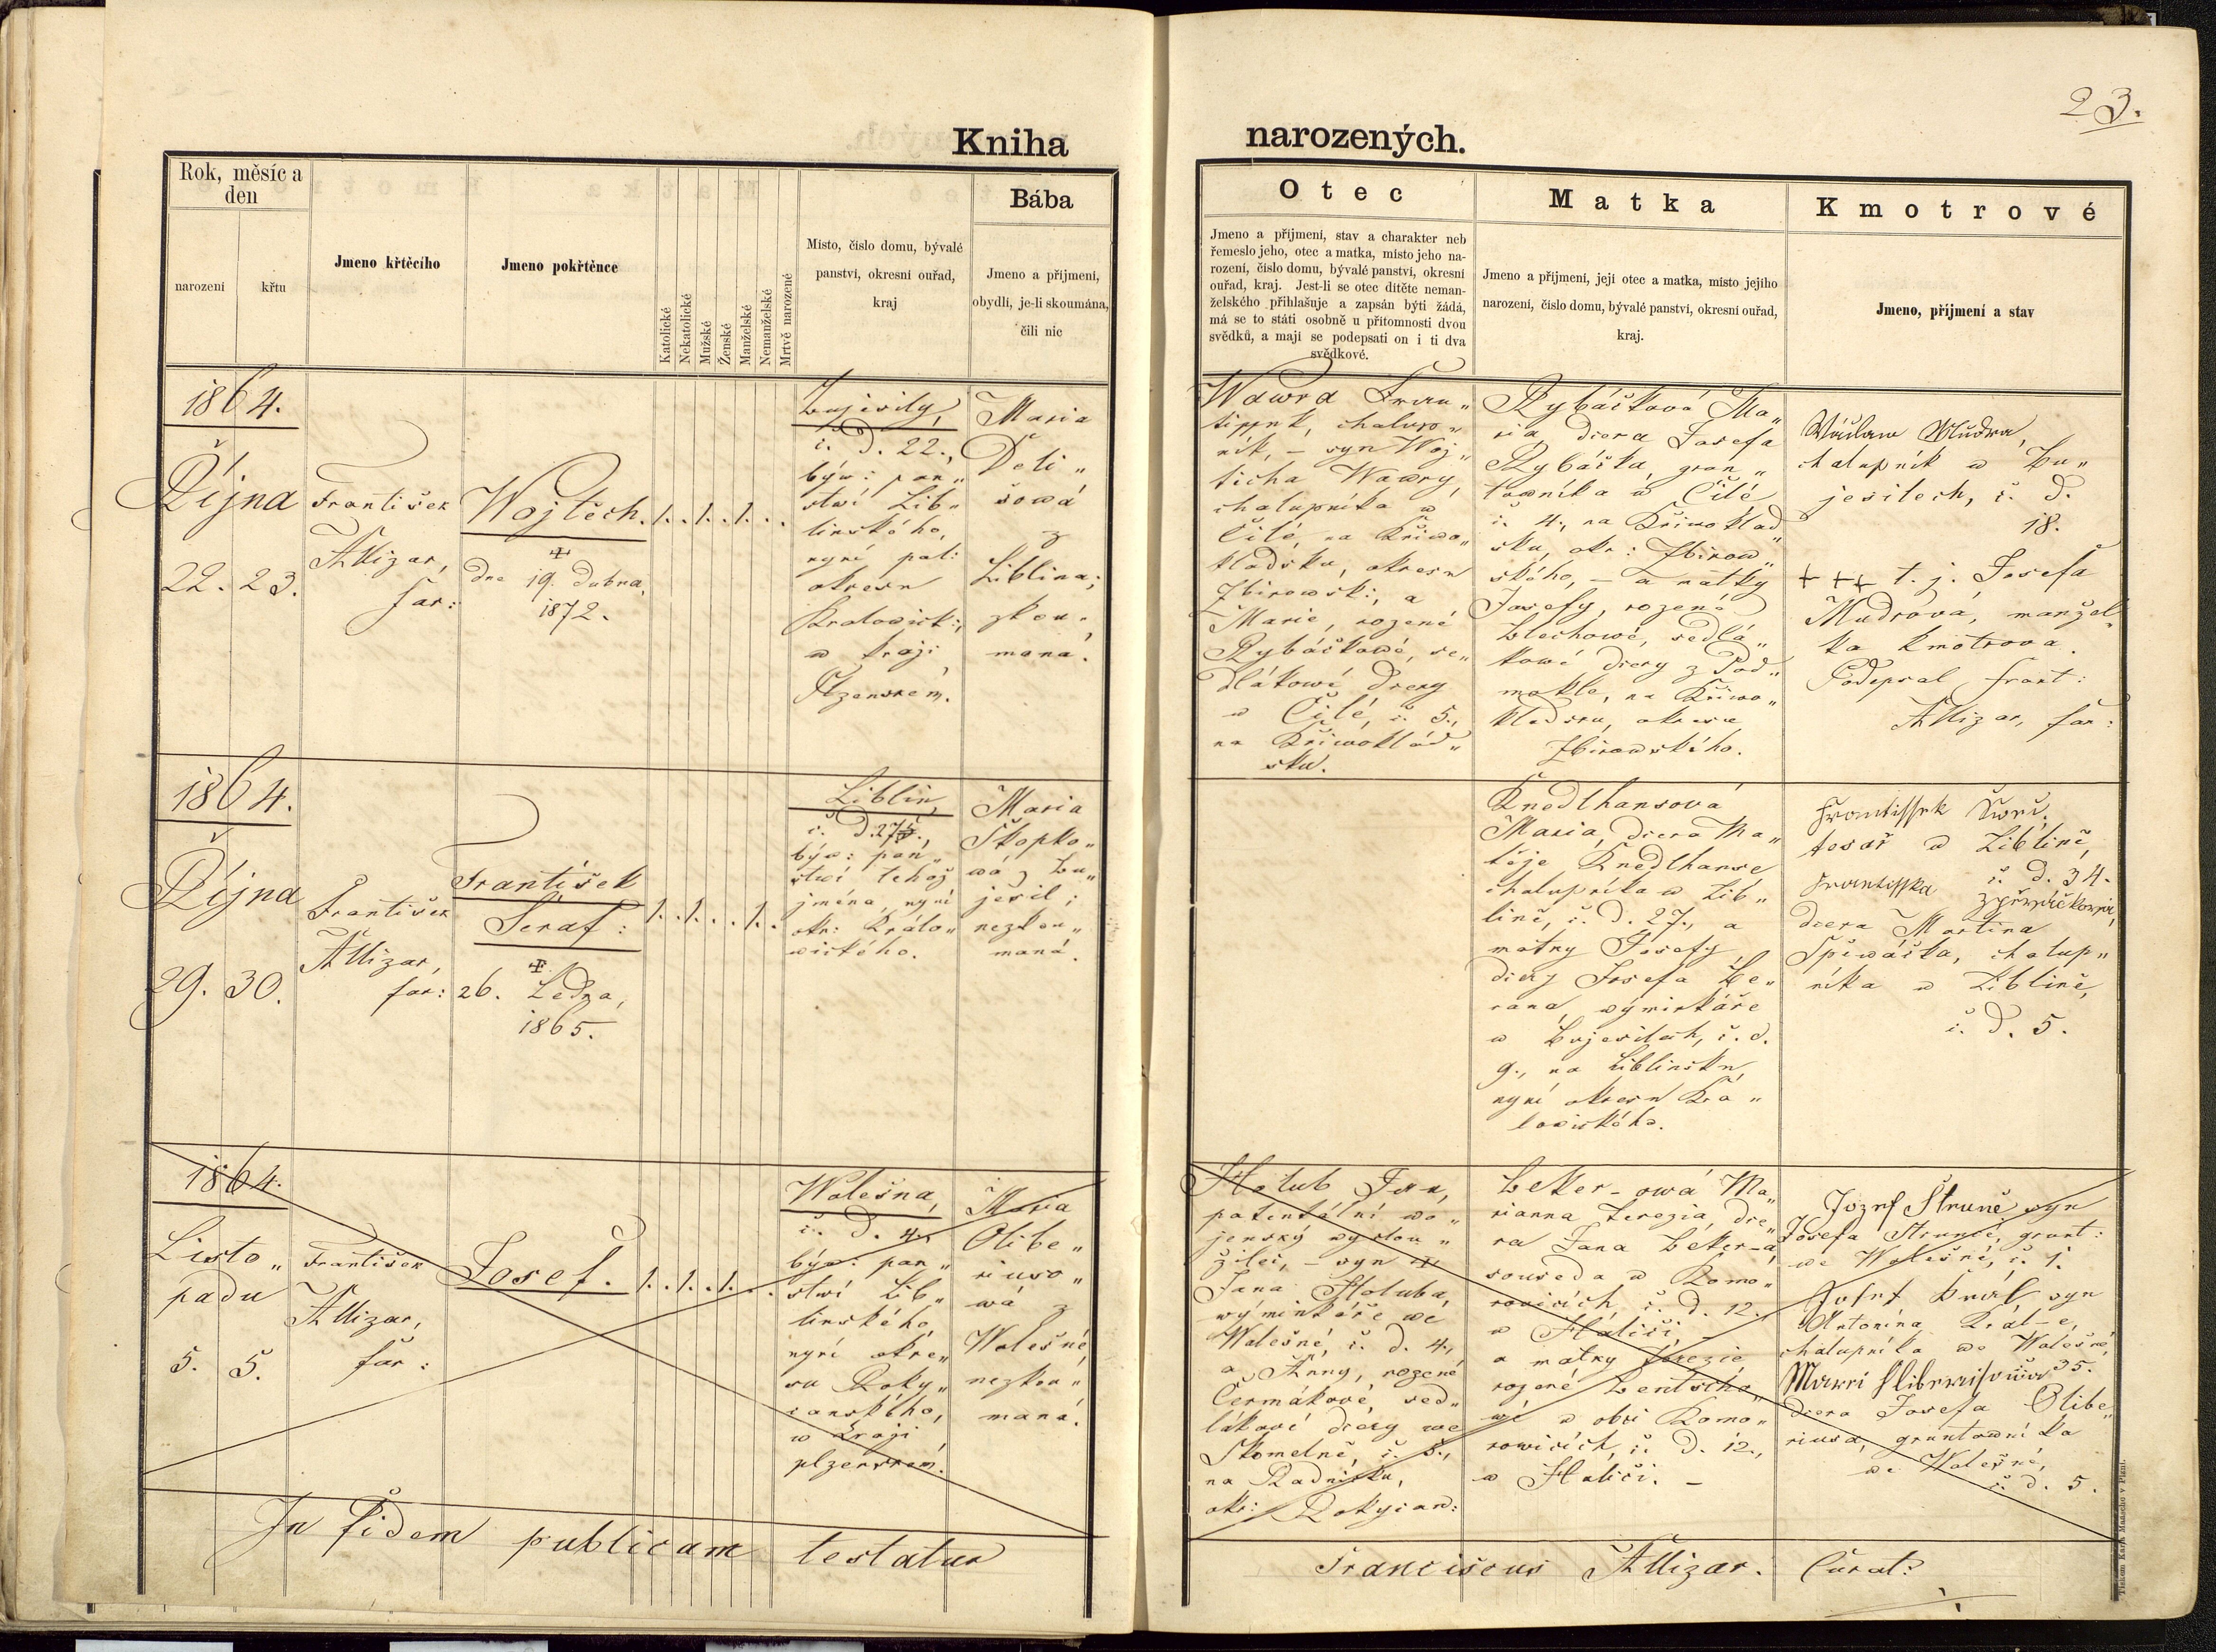 23.
Kniha
narozených.
Rok, měsíc a
den
narození
křtu
Jmeno křtěcího
Jmeno pokřtěnce
Katolické
Nekatolické
Mužské
Ženské
Manželské
Nemanželské
Mrtvě narozené
Místo, číslo domu, bývalé
panství, okresní ouřad,
kraj
Bába
Jmeno a příjmení,
obydlí, je-li skoumána,
čili nic
Otec
Jmeno a příjmení, stav a charakter neb
řemeslo jeho, otec a matka, místo jeho na-
rození, číslo domu, bývalé panství, okresní
ouřad, kraj. Jest-li se otec dítěte neman-
želského přihlašuje a zapsán býti žádá,
má se to státi osobně u přítomnosti dvou
svědků, a mají se podepsati on i ti dva
svědkové.
Matka
Jmeno a příjmení, její otec a matka, místo jejího
narození, číslo domu, bývalé panství, okresní ouřad,
kraj.
Kmotrové
Jmeno, příjmení a stav
1864.
Října
22. 23.
František
far:
Wojtěch.
dne 19. Dubna,
1872.
1. . 1. . 1. . .
č. D. 22.,
býw: pan„
ství Lib„
linského,
nyní pol:
okresu
Kralowick:,
w kraji
Plzenském.
Maria
Deli„
šowá
z
Liblína;
zkou„
maná.
Wawra Fran„
tissek, chalup„
ník, – syn Woj„
ticha Wawry,
chalupníka w
Čilé, na Křiwo„
kládsku, okresu
Zbirowsk:, a
Marie, rozené
Rybáčkowé, se„
dlákowé dcery
w Čilé, č. 5.,
na Křiwoklád„
sku.
Rybáčková Ma„
ria, dcera Josefa
Rybáčka, grun„
towníka w Čilé
č. 4., na Křiwoklad„
sku, okr: Zbirow„
ského, – a matky
Josefy, rozené
Blechowé, sedlá„
kowé dcery z Pod„
mokle, na Křiwo„
kladsku, okresu
Zbirowského.
Wáclaw Mudra,
chalupník w Bu„
jesilech, č. D.
18.
+ + + t. j. Josefa
Mudrová, manžel„
ka kmotrova.
Podepsal frant:
far:
1864.
Října
29. 30.
František
far:
František
Seraf:
26. Ledna,
1865.
1. . 1. . . 1. .
Liblín,
č. D. 27
býw: pan„
ství téhož
jména, nyní
okr: Králo„
wického.
Maria
Škopko„
wá z Bu„
jesil;
nezkou„
maná.
Knedlhansová
Maria, dcera Ma„
těje Knedlhanse
chalupníka w Lib„
líně, č. D. 27., a
matky Josefy,
dcery Josefa Be„
rana, wýminkáře
w Bujesilech, č. d.
9., na Liblínsku,
nyní okresu Krá„
lowického.
w Liblíně,
č. D. 34.
Frantisska
dcera Martina
Spěwáčka, chalup„
níka w Liblíně,
č. D. 5.
1864.
Listo„
padu
5. 5.
František
far:
Josef.
1. . 1. . 1. . .
Wolešna,
č. D. 4.
býw: pan„
ství Lib„
linského
nyní okre„
su Roky„
canského,
w kraji
plzenském.
Maria
Olibe„
riuso„
wá z
Wolešné,
nezkou„
maná.
Holub Jan,
patentální wo„
jenský wyslou„
žilec, – syn
Jana Holuba,
wýminkáře we
Wolešné, č. D. 4.,
a Anny, rozené
Čermákové, sed„
lákowé dcery we
Skomelně, č. 8.,
na Radnicku,
okr: Rokycan:
Beker-owá Ma„
rianna Terezia, dce„
ra Jana Beker-a
souseda w Komo„
rowicích, č. D. 12.
w Haliči, –
a matky Terezie,
rozené
w obci Komo„
rowicích, č. D. 12.,
w Haliči. –
Jozef Strunc syn
Josefa Strunce, grunt:
we Wolešné, č. 1.
Josef Král syn
Antonína Král-e,
chalupníka we Wolešné,
č. 35.
dcera Josefa Olibe„
riusa, gruntowníka
we Wolešné,
č. D. 5.
In fidem publicam testatur
Franciscus
Curat:
Tiskem Karla Maascho v Plzni.